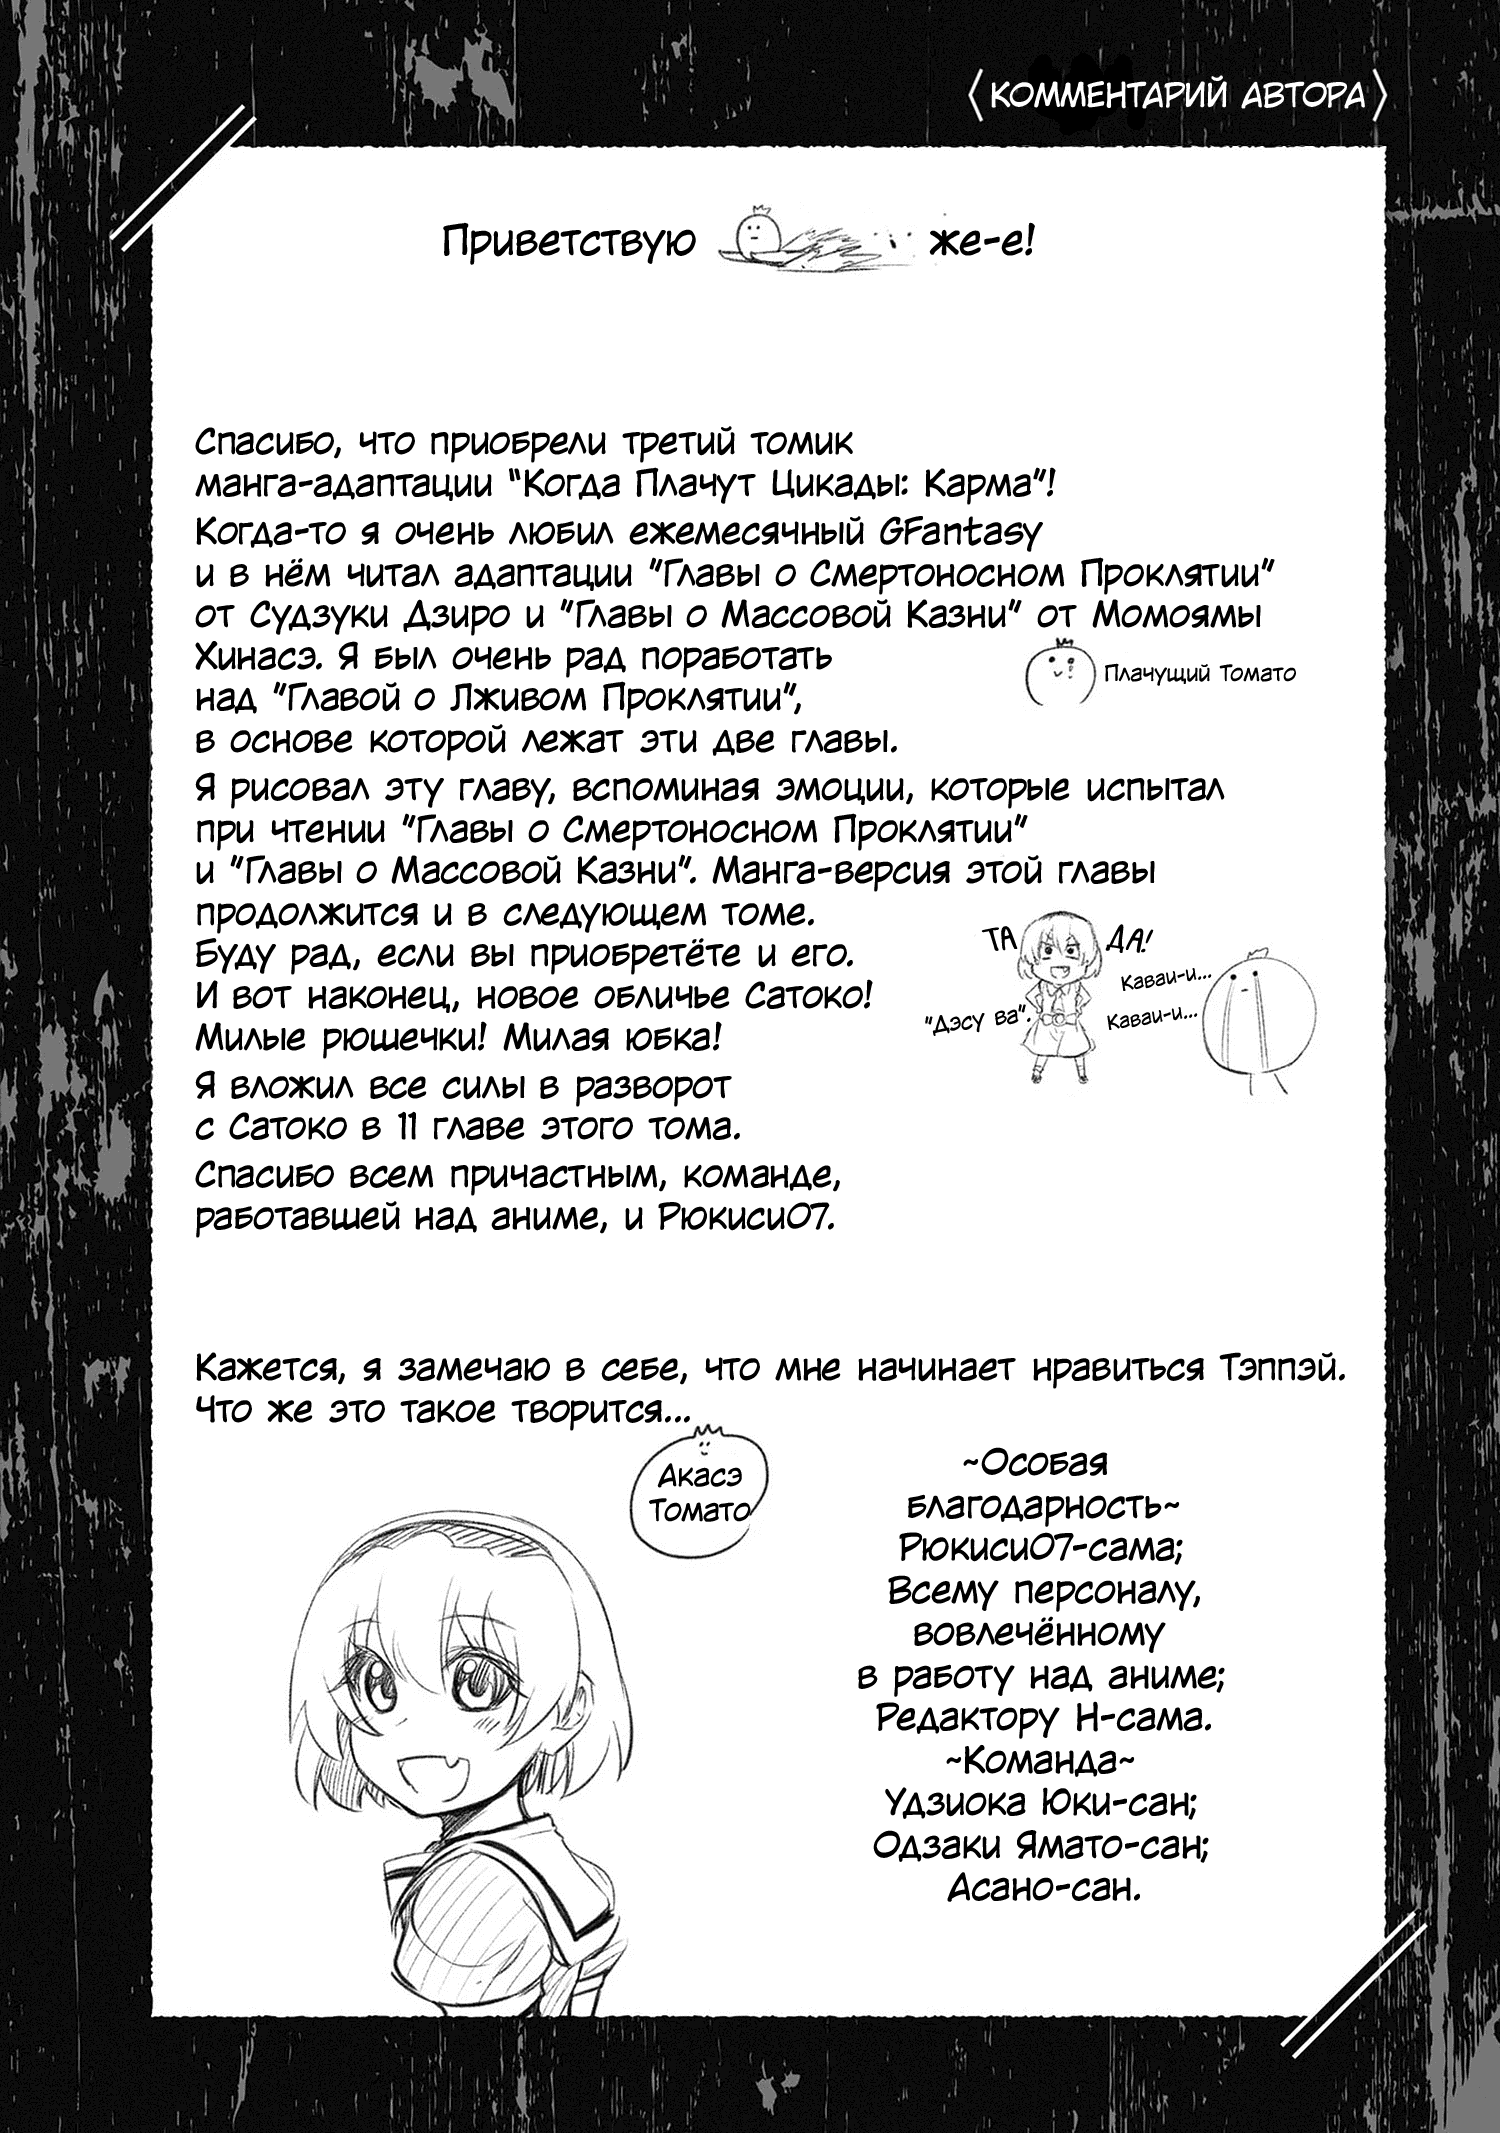 〈КОММЕНТАРИЙ АВТОРА〉
Приветствую же-е!
Спасибо, что приобрели третий томик
манга-адаптации "Когда Плачут Цикады: Карма"!
Когда-то я очень любил ежемесячный GFantasy
и в нём читал адаптации "Главы о Смертоносном Проклятии"
от Судзуки Дзиро и "Главы о Массовой Казни" от Момоямы
Хинасэ. Я был очень рад поработать
над "Главой о Лживом Проклятии",
в основе которой лежат эти две главы.
Плачущий Томато
Я рисовал эту главу, вспоминая эмоции, которые испытал
при чтении "Главы о Смертоносном Проклятии"
и "Главы о Массовой Казни". Манга-версия этой главы
продолжится и в следующем томе.
Буду рад, если вы приобретёте и его.
И вот наконец, новое обличье Сатоко!
Милые рюшечки! Милая юбка!
ТА ДА!
Каваи-и...
"Дэсу ва".
Каваи-и...
Я вложил все силы в разворот
с Сатоко в 11 главе этого тома.
Спасибо всем причастным, команде,
работавшей над аниме, и Рюкиси07.
Кажется, я замечаю в себе, что мне начинает нравиться Тэппэй.
Что же это такое творится...
Акасэ
Томато
~Особая
благодарность~
Рюкиси07-сама;
Всему персоналу,
вовлечённому
в работу над аниме;
Редактору Н-сама.
~Команда~
Удзиока Юки-сан;
Одзаки Ямато-сан;
Асано-сан.